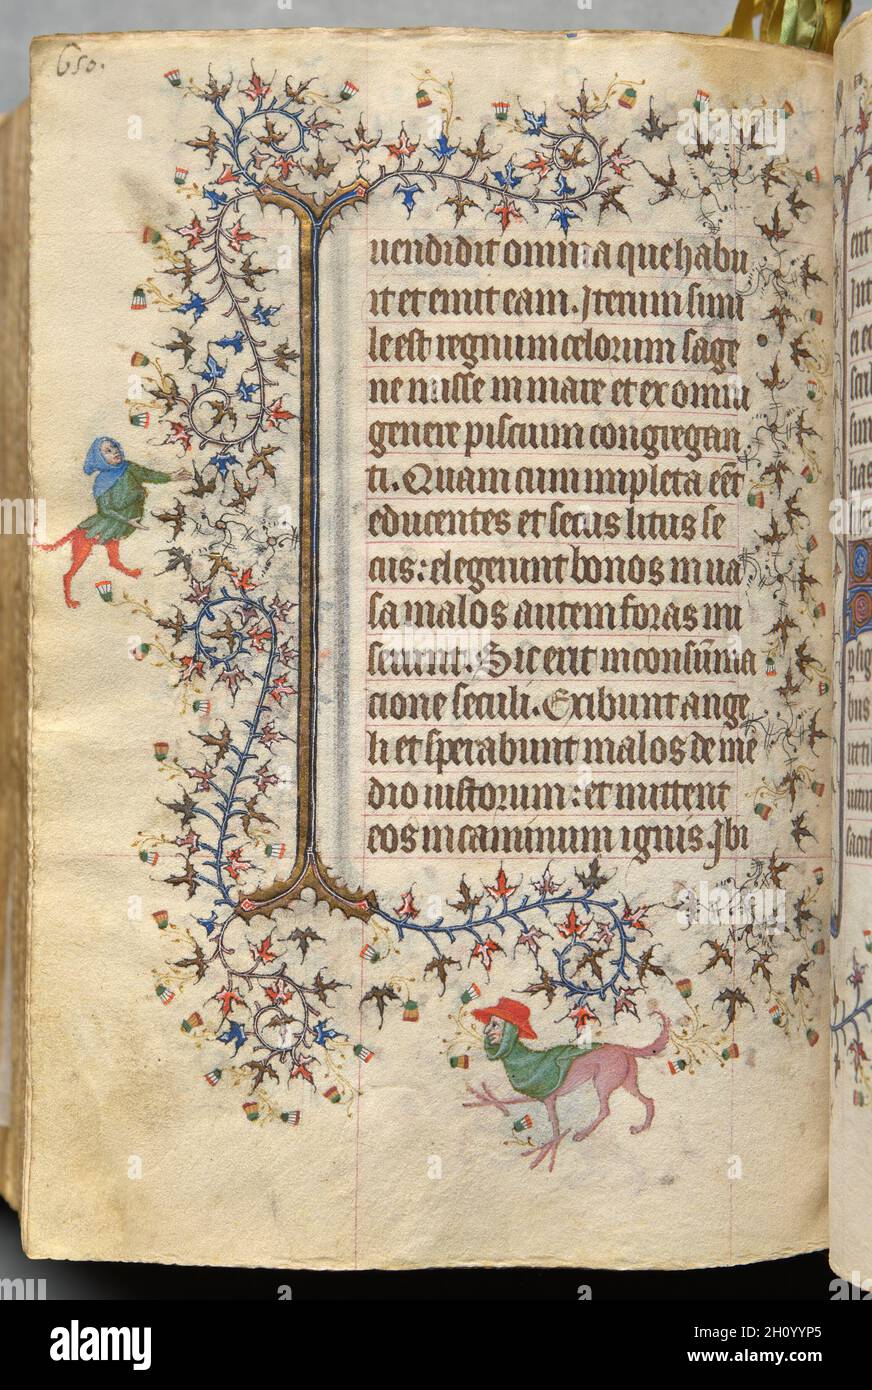 650.
uendidit omnia que habu
it et emit eam. Iterum simi
le est regnum celorum sage
ne misse in mare et ex omni
genere piscium congregan
ti. Quam cum impleta eēt
educentes et secus litus se
cus: elegerunt bonos in ua
sa malos autem foras mi
serunt. Sic erit in consūma
cione seculi. Exibunt ange
li et sperabunt malos de me
dio iustorum: et mittent
eos in caminum ignis. Ibi
alamy
Image ID: 2H0YYP5
www.alamy.com